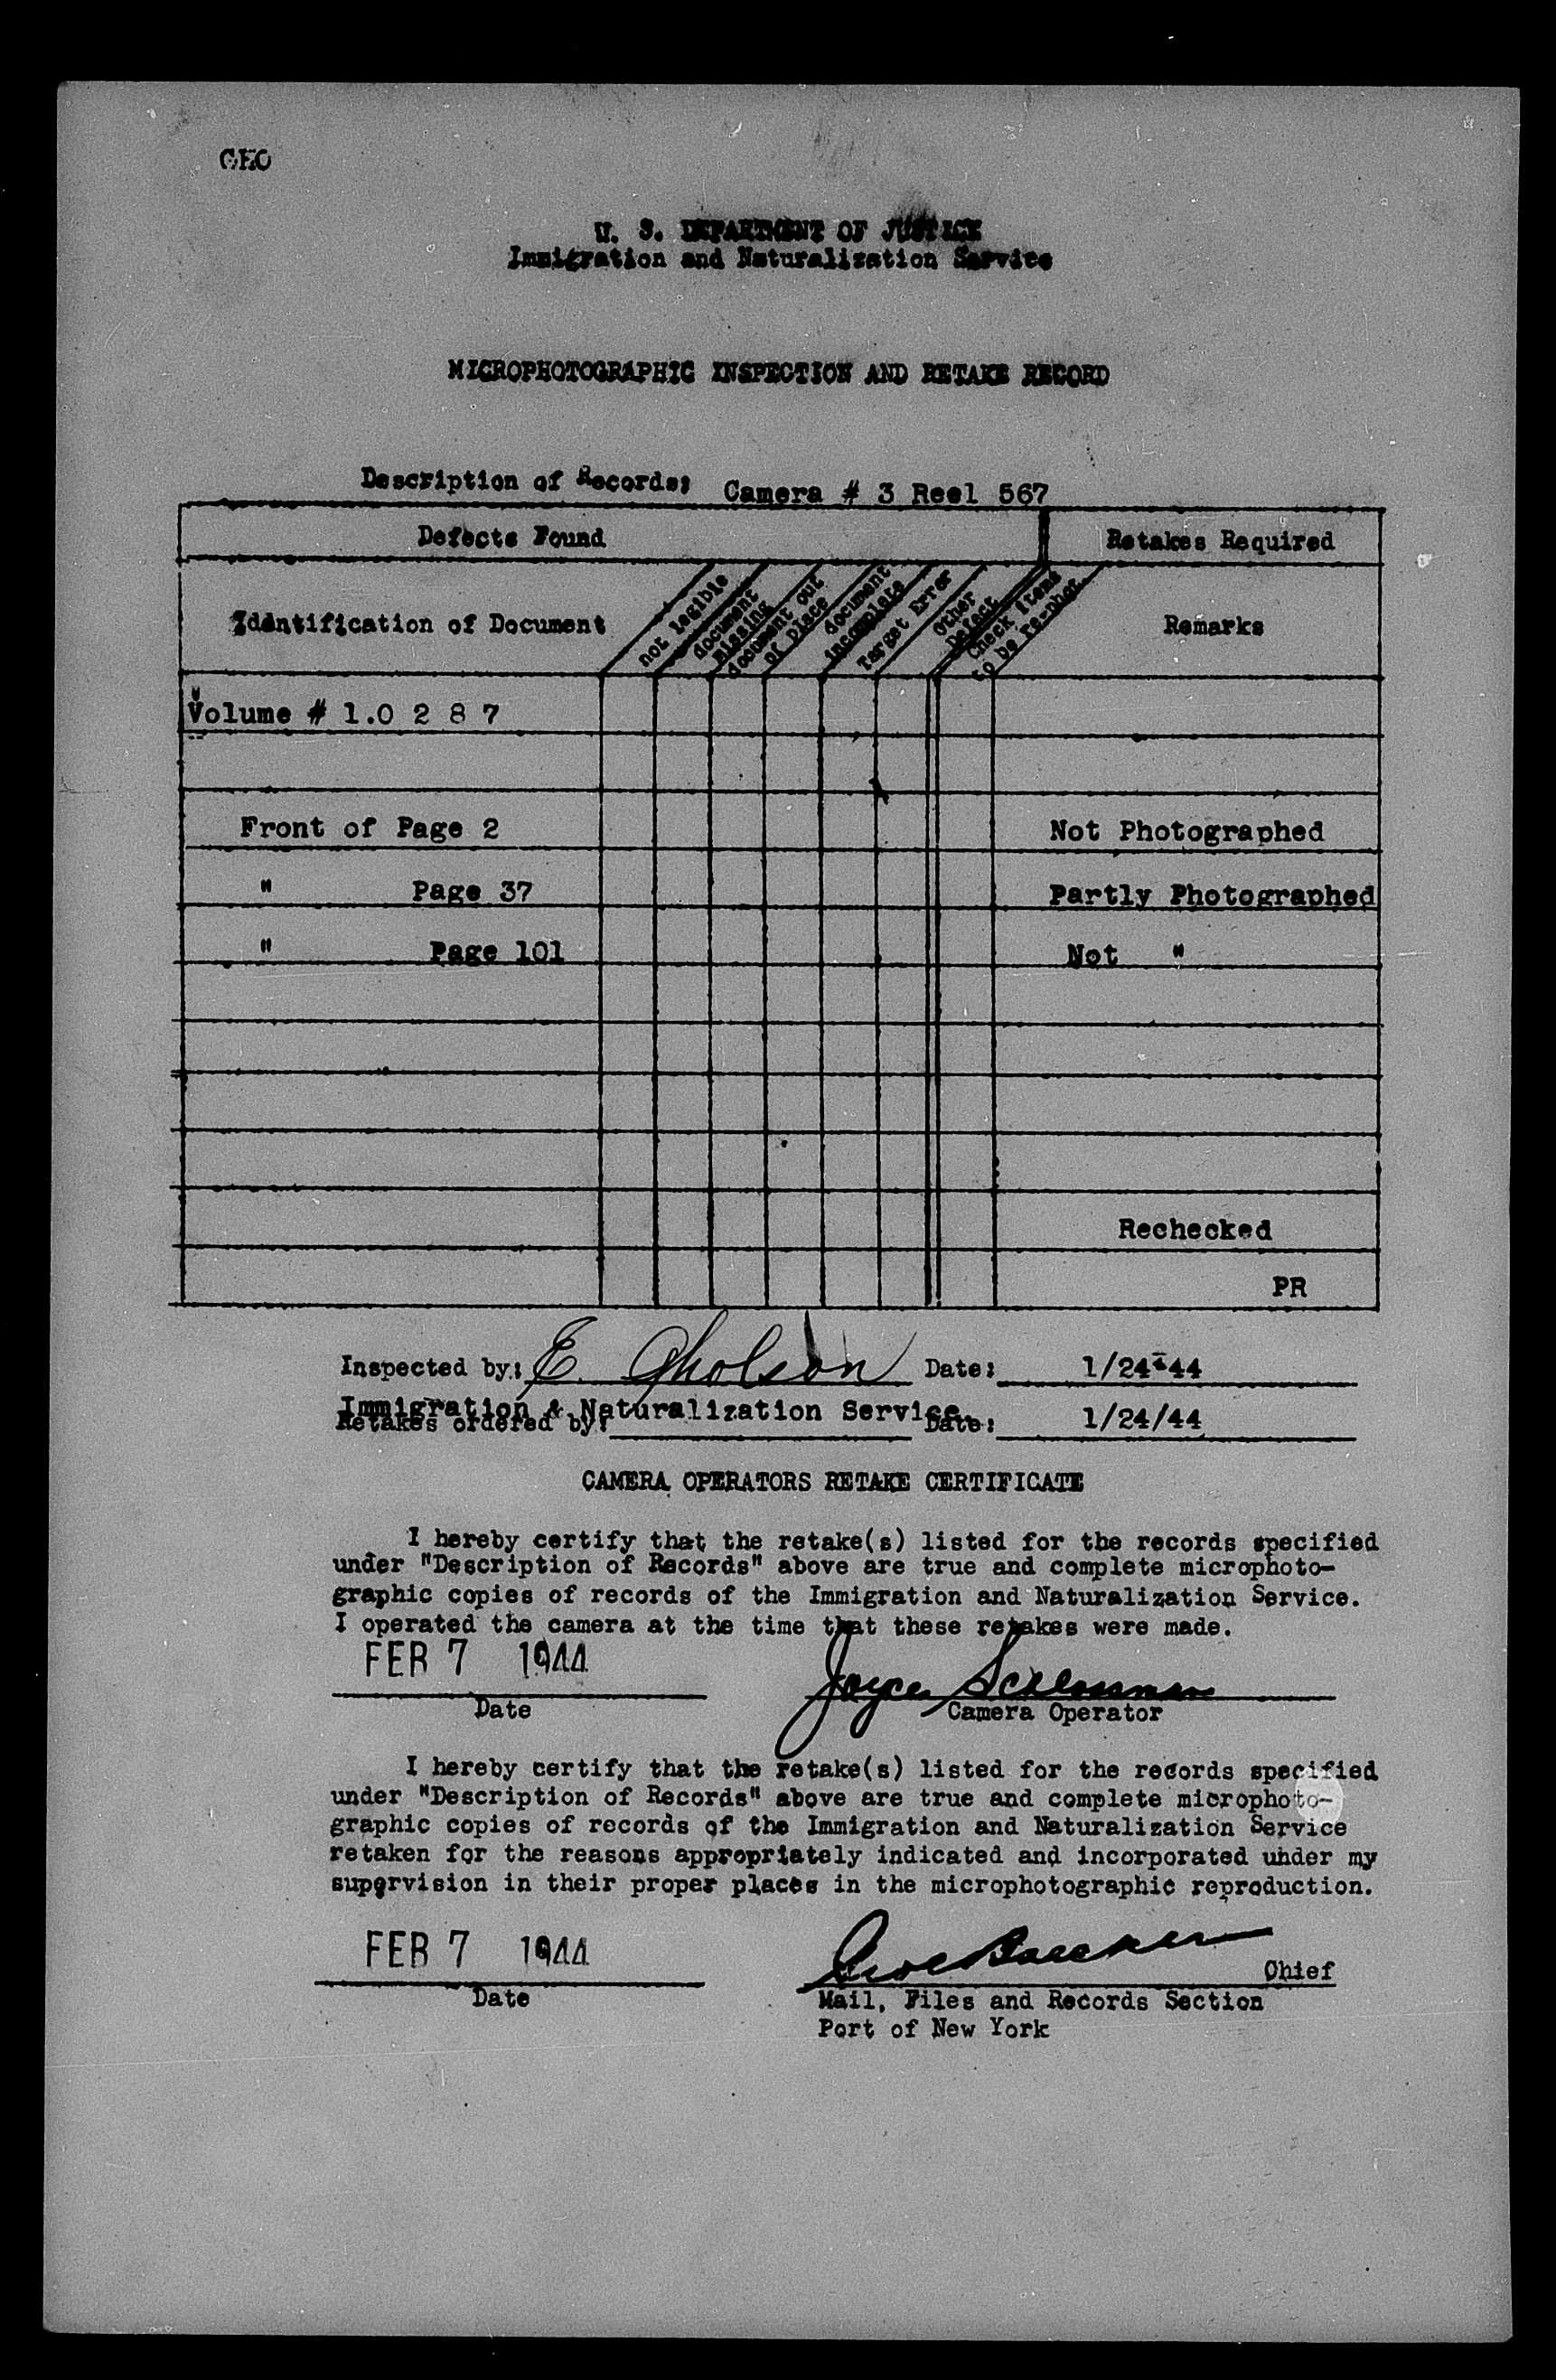 GEO
U. S. DEPARTMENT OF JUSTICE
Immigration and Naturalization Service
MICROPHOTOGRAPHIC INSPECTION AND RETAKE RECORD
Description of Records: Camera # 3 Reel 567
Defects Found Retakes Required
Identification of Document not legible document missing document out of place document incomplete Target Error Other Defect Check items to be re-phot Remarks
Volume # 1.0 2 8 7
Front of Page 2 Not Photographed
" Page 37 Partly Photographed
" Page 101 Not "
Rechecked
PR
Inspected by: E. Gholson Date: 1/24-44
Immigration & Naturalization Service.
Retakes ordered by: Date: 1/24/44
CAMERA OPERATORS RETAKE CERTIFICATE
I hereby certify that the retake(s) listed for the records specified
under "Description of Records" above are true and complete microphoto-
graphic copies of records of the Immigration and Naturalization Service.
I operated the camera at the time that these retakes were made.
FEB 7 1944 Joyce Schlossman
Date Camera Operator
I hereby certify that the retake(s) listed for the records specified
under "Description of Records" above are true and complete microphoto-
graphic copies of records of the Immigration and Naturalization Service
retaken for the reasons appropriately indicated and incorporated under my
supervision in their proper places in the microphotographic reproduction.
FEB 7 1944
Chief
Date Mail, Files and Records Section
Port of New York